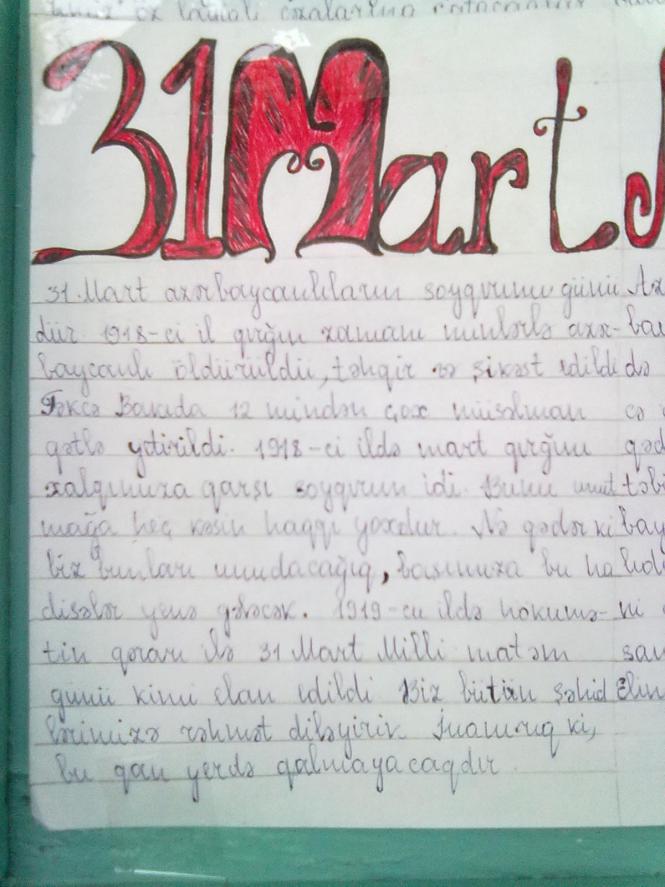 öz
31 Mart
31 Mart azərbaycanlıların soyqırımı günü
dür. 1918-ci il qırğın zamanı minlərlə azər-
baycanlı öldürüldü, təhqir və şikəst edildi
Təkcə Bakıda 12 mindən çox müsəlman
qətlə yetirildi. 1918-ci ildə mart qırğını
xalqımıza qarşı soyqırım idi. Bunu unut
mağa heç kəsin haqqı yoxdur. Nə qədər ki
biz bunları unudacağıq, başımıza bu ha
disələr yenə gələcək. 1919-cu ildə hökumə-
tin qərarı ilə 31 Mart Milli matəm
günü kimi elan edildi Biz bütün şəhid
lərimizə rəhmət diləyirik İnanırıq ki,
bu qan yerdə qalmayacaqdır.